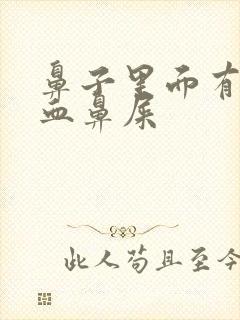 鼻子里而有
血鼻屎
此人苟且至今